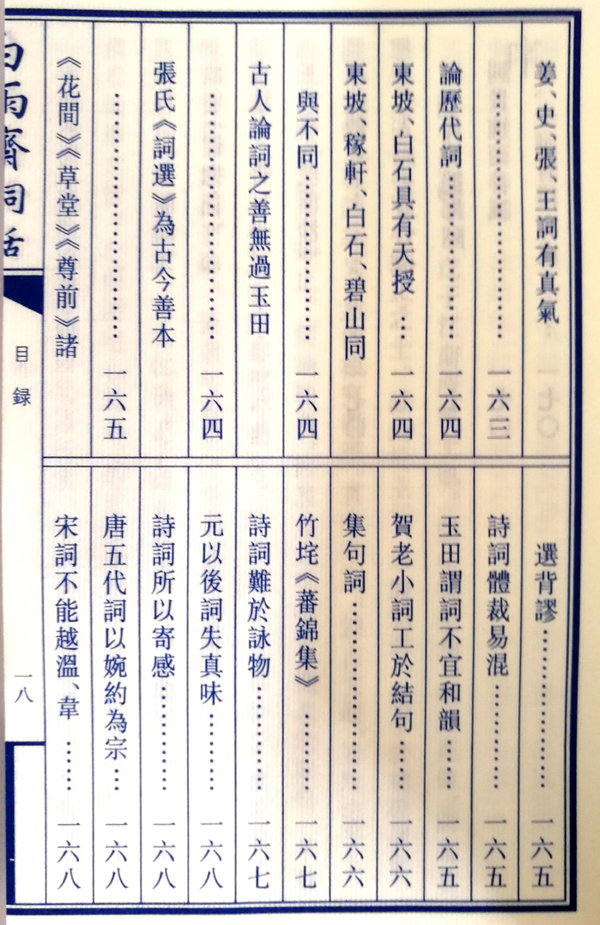 姜、史、張、王詞有真氣
……………………一六三
論歷代詞……………一六四
東坡、白石具有天授…一六四
東坡、稼軒、白石、碧山同
與不同………………一六四
古人論詞之善無過玉田
……………………一六四
張氏《詞選》為古今善本
……………………一六五
《花間》《草堂》《尊前》諸
選背謬………………一六五
詩詞體裁易混…………一六五
玉田謂詞不宜和韻……一六五
賀老小詞工於結句……一六六
集句詞………………一六六
竹垞《蕃錦集》………一六七
詩詞難於詠物…………一六七
元以後詞失真味………一六八
詩詞所以寄感…………一六八
唐五代詞以婉約為宗…一六八
宋詞不能越溫、韋……一六八
白雨齋詞話
目録
一八